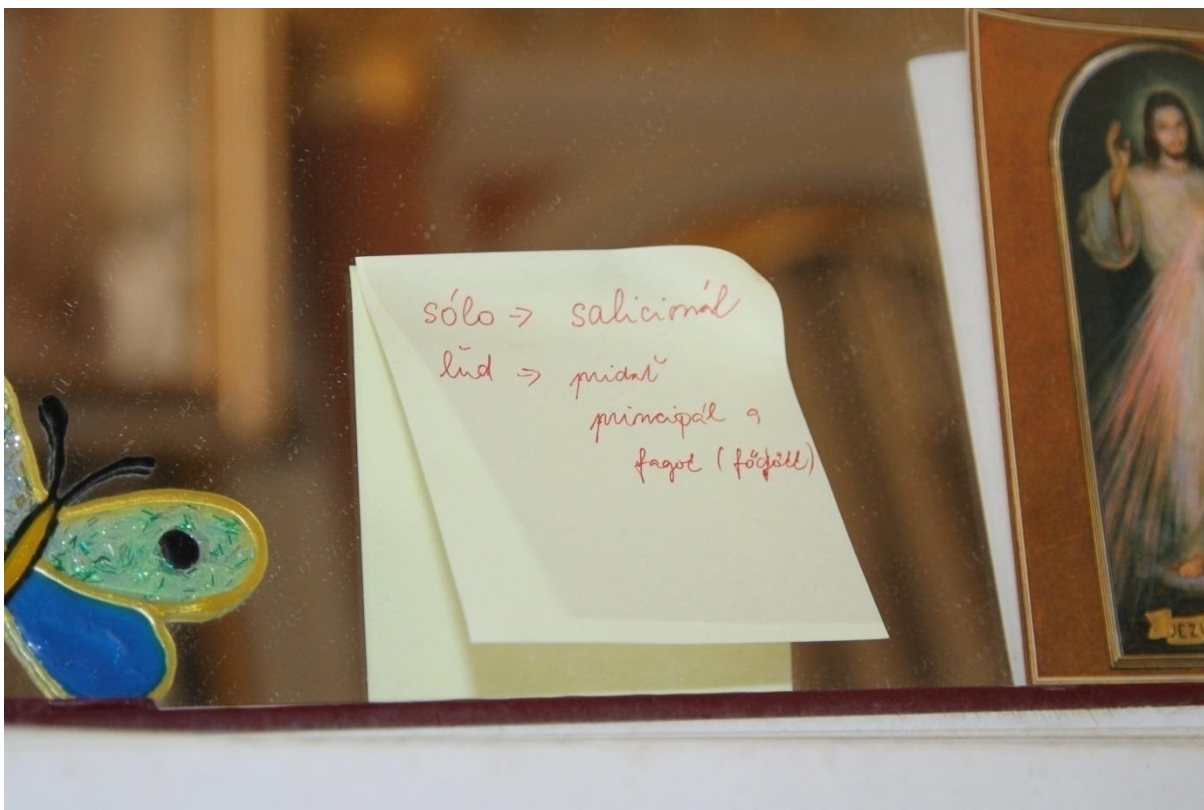 sólo → salicionál
ľud → pridať
principál a
fagot (
JEZU